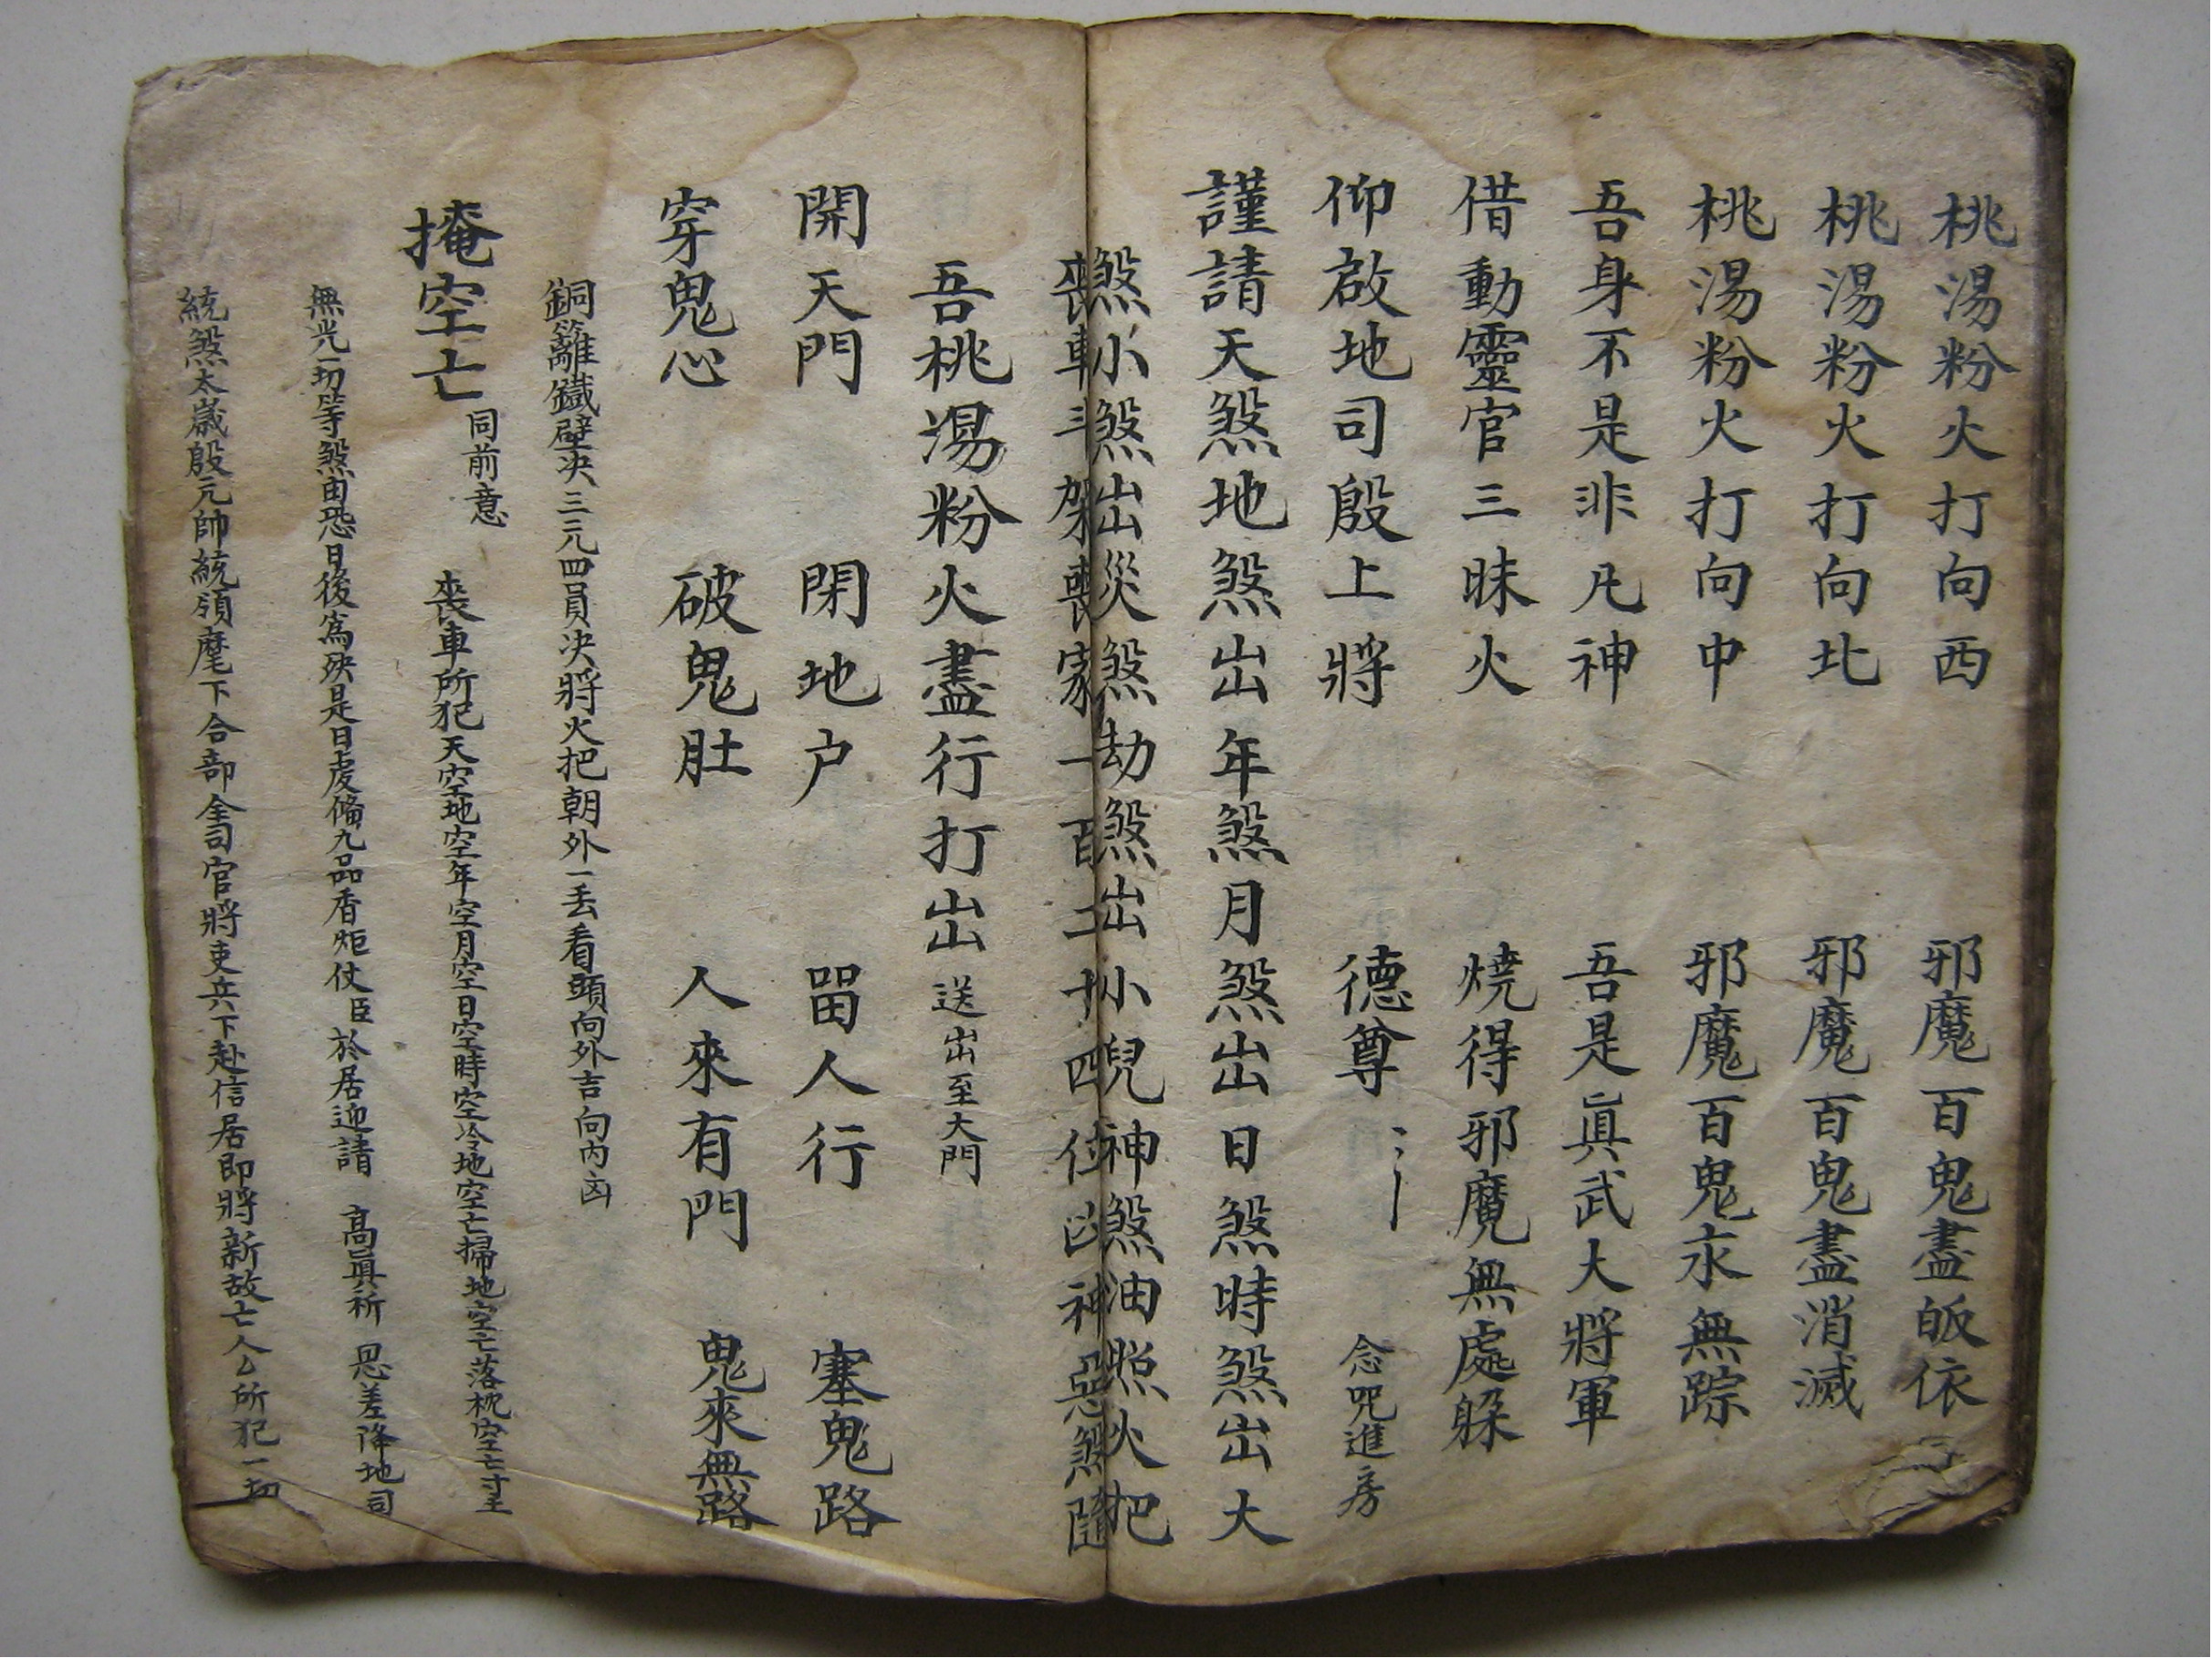 桃湯粉火打向西 邪魔百鬼盡皈依
桃湯粉火打向北 邪魔百鬼盡消滅
桃湯粉火打向中 邪魔百鬼永無踪
吾身不是非凡神 吾是眞武大將軍
借動靈官三昧火 燒得邪魔無處躲
仰啟地司殷上將 德尊 念咒進房
謹請天煞地煞出年煞月煞出日煞時煞出大
煞小煞出災煞劫煞出小兒神煞油照火把
喪車三架喪家一百二十四位凶神惡煞隨
吾桃湯粉火盡行打出 送出至大門
開天門 閉地户 畱人行 塞鬼路
穿鬼心 破鬼肚 人來有門 鬼來無路
銅籬鐵壁决三元四員决將火把朝外一丢看頭向外吉向内凶
掩空亡 同前意 喪車所犯天空地空年空月空日空時空冷地空亡掃地空亡落枕空亡寸土
無光一切等煞由恐日後為殃是日虔俻九品香炬仗臣於居迎請 高眞祈 恩差降地司
統煞太歲殷元帥統領麾下合部僉司官將吏兵下赴信居即將新故亡人厶所犯一切